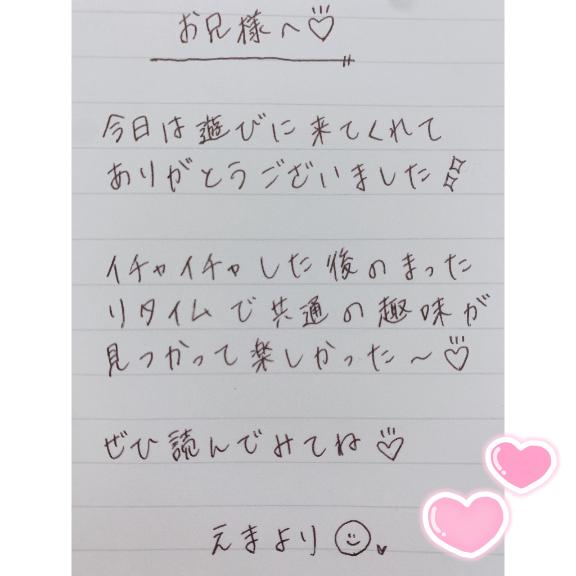 お兄様へ♡
今日は遊びに来てくれて
ありがとうございました
イチャイチャした後のまった
りタイムで共通の趣味が
見つかって楽しかった〜♡
ぜひ読んでみてね♡
えまより